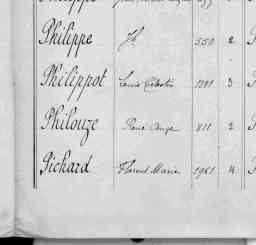 Philippe Jh 550 2
Philippot Louis Célestin 1291 3
Philouze René Ange 811 2
Pichard Florent Marie 1961 4